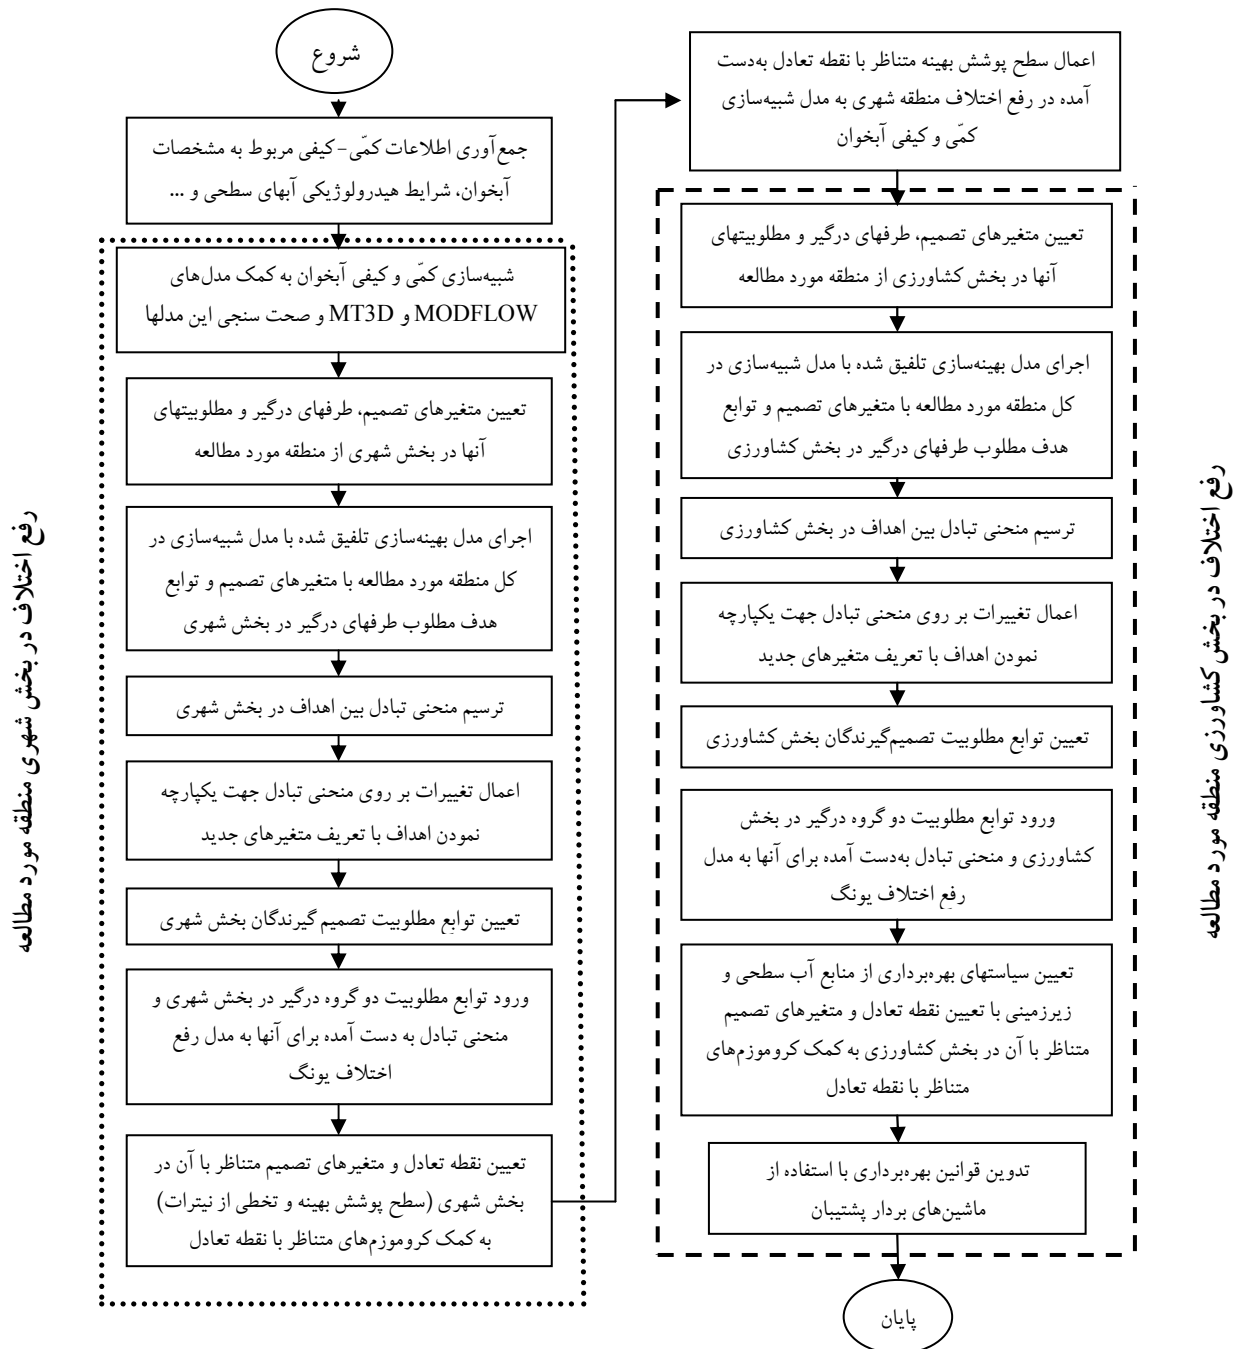 شروع
جمع‌آوری اطلاعات کمّی-کیفی مربوط به مشخصات
آبخوان، شرایط هیدرولوژیکی آبهای سطحی و ...
شبیه‌سازی کمّی و کیفی آبخوان به کمک مدل‌های
MODFLOW و MT3D و صحت سنجی این مدلها
تعیین متغیرهای تصمیم، طرفهای درگیر و مطلوبیتهای
آنها در بخش شهری از منطقه مورد مطالعه
اجرای مدل بهینه‌سازی تلفیق شده با مدل شبیه‌سازی در
کل منطقه مورد مطالعه با متغیرهای تصمیم و توابع
هدف مطلوب طرفهای درگیر در بخش شهری
ترسیم منحنی تبادل بین اهداف در بخش شهری
اعمال تغییرات بر روی منحنی تبادل جهت یکپارچه
نمودن اهداف با تعریف متغیرهای جدید
تعیین توابع مطلوبیت تصمیم گیرندگان بخش شهری
ورود توابع مطلوبیت دو گروه درگیر در بخش شهری و
منحنی تبادل به دست آمده برای آنها به مدل رفع
اختلاف یونگ
تعیین نقطه تعادل و متغیرهای تصمیم متناظر با آن در
بخش شهری (سطح پوشش بهینه و تخطی از نیترات)
به کمک کروموزم‌های متناظر با نقطه تعادل
رفع اختلاف در بخش شهری منطقه مورد مطالعه
اعمال سطح پوشش بهینه متناظر با نقطه تعادل به‌دست
آمده در رفع اختلاف منطقه شهری به مدل شبیه‌سازی
کمّی و کیفی آبخوان
تعیین متغیرهای تصمیم، طرفهای درگیر و مطلوبیتهای
آنها در بخش کشاورزی از منطقه مورد مطالعه
اجرای مدل بهینه‌سازی تلفیق شده با مدل شبیه‌سازی در
کل منطقه مورد مطالعه با متغیرهای تصمیم و توابع
هدف مطلوب طرفهای درگیر در بخش کشاورزی
ترسیم منحنی تبادل بین اهداف در بخش کشاورزی
اعمال تغییرات بر روی منحنی تبادل جهت یکپارچه
نمودن اهداف با تعریف متغیرهای جدید
تعیین توابع مطلوبیت تصمیم‌گیرندگان بخش کشاورزی
ورود توابع مطلوبیت دو گروه درگیر در بخش
کشاورزی و منحنی تبادل به‌دست آمده برای آنها به مدل
رفع اختلاف یونگ
تعیین سیاستهای بهره‌برداری از منابع آب سطحی و
زیرزمینی با تعیین نقطه تعادل و متغیرهای تصمیم
متناظر با آن در بخش کشاورزی به کمک کروموزم‌های
متناظر با نقطه تعادل
تدوین قوانین بهره‌برداری با استفاده از
ماشین‌های بردار پشتیبان
پایان
رفع اختلاف در بخش کشاورزی منطقه مورد مطالعه